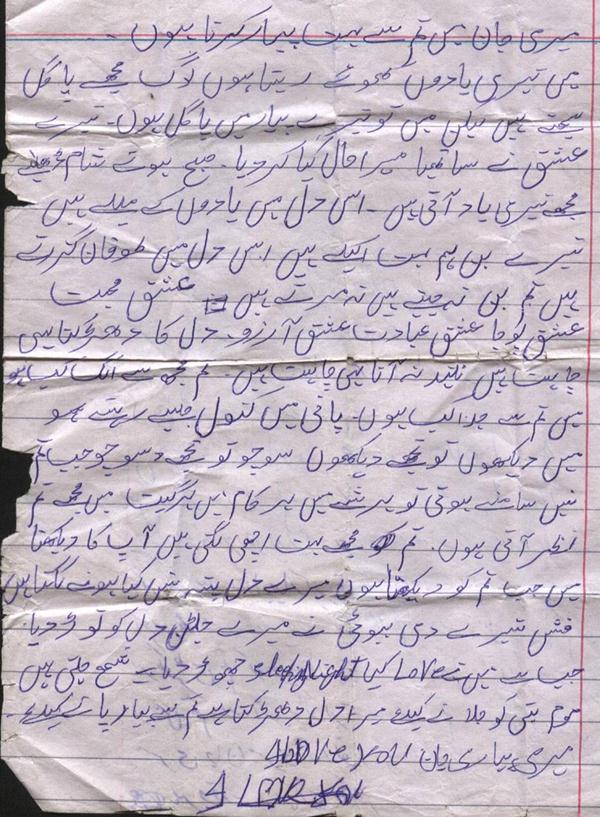 میری جان میں تم سے بہت پیار کرتا ہوں
میں تیری یادوں کھوئے رہتا ہوں لوگ مجھے پاگل
کہتے ہیں لیکن میں تو تیرے پیار میں پاگل ہوں۔ تیرے
عشق نے ساتھیا میرا حال کیا کر دیا۔ صبح ہوتے شام
مجھے تیری یاد آتی ہیں۔ اس دل میں یادوں کے میلے ہیں
تیرے بن ہم بہت اکیلے ہیں اس دل میں طوفان گزرتے
ہیں تم بن نہ جیتے ہیں نہ مرتے ہیں عشق محبت
عشق پوجا عشق عبادت عشق آرزو۔ دل کا دھڑکتا ہی
چاہت ہیں نیند نہ آنا ہی چاہت ہیں۔ تم مجھ سے الگ کب ہو
میں تم سے جدا کب ہوں۔ پانی میں کنول جیسے رہتے ہو
میں دیکھوں تو تجھے دیکھوں سوچو تو تجھے سوچو جب تم
نہیں سامنے ہوتی تو ہر شے میں ہر کام میں ہر گیت میں مجھے تم
نظر آتی ہوں۔ تم مجھے بہت اچھی لگتی ہیں آپ کا دیکھتا
میں جب تم کو دیکھتا ہوں میرے دل پتہ نہیں کیا ہونے لگتا ہیں
تیرے دی نے میرے دل کو توڑ دیا
جب سے میں نے Love کیا Night sleep چھوڑ دیا۔ شمع جلتی ہیں
موم بتی کو جلانے کیلئے میرا دل دھڑکتا ہے تم سے پیار پانے کیلئے۔
میری پیاری جان I Love You
I Love You